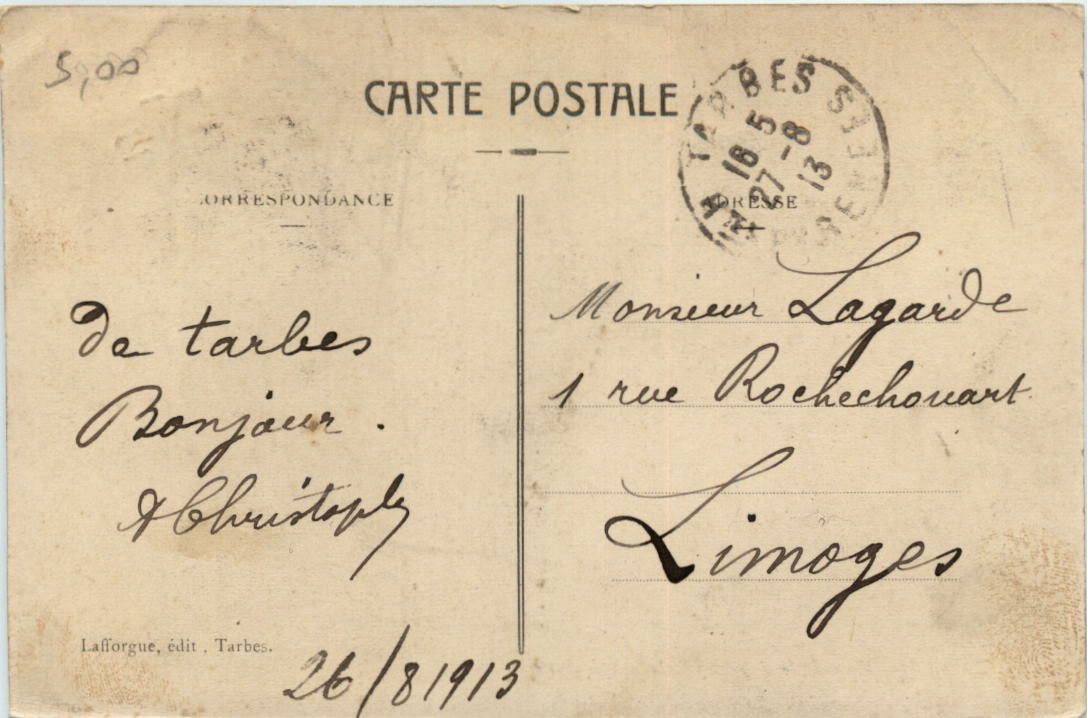 5,00
CARTE POSTALE
CORRESPONDANCE
ADRESSE
TARBES
16 5
27 -8
13
PYRENEES
De tarbes
Bonjour .
A Christophe
Monsieur Lagarde
1 rue Rochechouart
Limoges
Lafforgue, édit , Tarbes.
26/8 1913